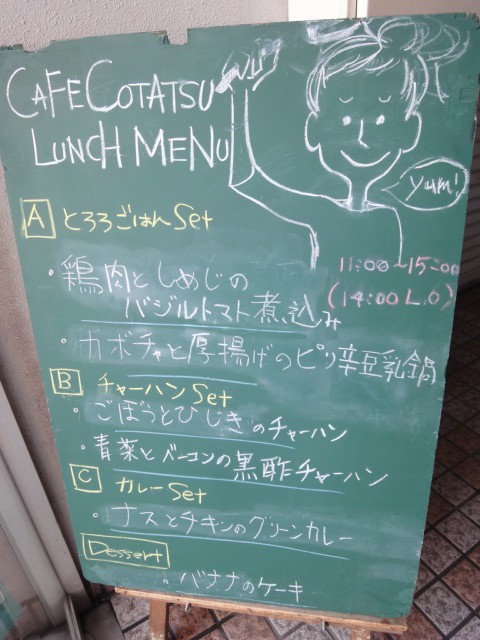 CAFE COTATSU
LUNCH MENU
Yum!
A とろろごはんSet
11:00~15:00
(14:00 L.O)
・鶏肉としめじの
バジルトマト煮込み
・カボチャと厚揚げのピリ辛豆乳鍋
B チャーハンSet
・ごぼうとひじきのチャーハン
・青菜とベーコンの黒酢チャーハン
C カレーSet
・ナスとチキンのグリーンカレー
Dessert
。バナナのケーキ